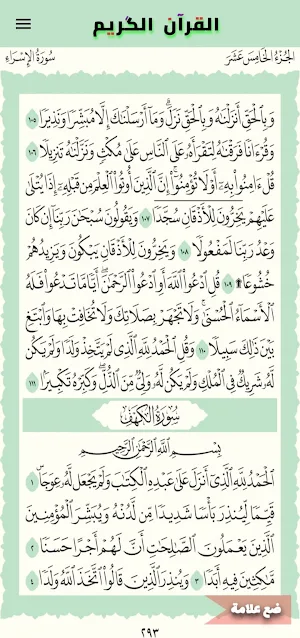 القرآن الكريم
الجُزْءُ الخَامِسَ عَشَرَ
سُورَةُ الإِسْرَاءِ
وَبِالْحَقِّ أَنزَلْنَٰهُ وَبِالْحَقِّ نَزَلَ ۗ وَمَآ أَرْسَلْنَٰكَ إِلَّا مُبَشِّرًا وَنَذِيرًا ١٠٥
وَقُرْءَانًا فَرَقْنَٰهُ لِتَقْرَأَهُۥ عَلَى النَّاسِ عَلَىٰ مُكْثٍ وَنَزَّلْنَٰهُ تَنزِيلًا ١٠٦
قُلْ ءَامِنُوا۟ بِهِۦٓ أَوْ لَا تُؤْمِنُوٓا۟ ۚ إِنَّ الَّذِينَ أُوتُوا۟ الْعِلْمَ مِن قَبْلِهِۦٓ إِذَا يُتْلَىٰ
عَلَيْهِمْ يَخِرُّونَ لِلْأَذْقَانِ سُجَّدًا ١٠٧ وَيَقُولُونَ سُبْحَٰنَ رَبِّنَآ إِن كَانَ
وَعْدُ رَبِّنَا لَمَفْعُولًا ١٠٨ وَيَخِرُّونَ لِلْأَذْقَانِ يَبْكُونَ وَيَزِيدُهُمْ
خُشُوعًا ۩ ١٠٩ قُلِ ادْعُوا۟ اللَّهَ أَوِ ادْعُوا۟ الرَّحْمَٰنَ ۖ أَيًّا مَّا تَدْعُوا۟ فَلَهُ
الْأَسْمَآءُ الْحُسْنَىٰ ۚ وَلَا تَجْهَرْ بِصَلَاتِكَ وَلَا تُخَافِتْ بِهَا وَابْتَغِ
بَيْنَ ذَٰلِكَ سَبِيلًا ١١٠ وَقُلِ الْحَمْدُ لِلَّهِ الَّذِى لَمْ يَتَّخِذْ وَلَدًا وَلَمْ يَكُن
لَّهُۥ شَرِيكٌ فِى الْمُلْكِ وَلَمْ يَكُن لَّهُۥ وَلِىٌّ مِّنَ الذُّلِّ ۖ وَكَبِّرْهُ تَكْبِيرًۢا ١١١
سُورَةُ الكَهْفِ
بِسْمِ اللَّهِ الرَّحْمَٰنِ الرَّحِيمِ
الْحَمْدُ لِلَّهِ الَّذِىٓ أَنزَلَ عَلَىٰ عَبْدِهِ الْكِتَٰبَ وَلَمْ يَجْعَل لَّهُۥ عِوَجَا ۜ ١
قَيِّمًا لِّيُنذِرَ بَأْسًا شَدِيدًا مِّن لَّدُنْهُ وَيُبَشِّرَ الْمُؤْمِنِينَ
الَّذِينَ يَعْمَلُونَ الصَّٰلِحَٰتِ أَنَّ لَهُمْ أَجْرًا حَسَنًا ٢
مَّٰكِثِينَ فِيهِ أَبَدًا ٣ وَيُنذِرَ الَّذِينَ قَالُوا۟ اتَّخَذَ اللَّهُ وَلَدًا ٤
ضع علامة
٢٩٣